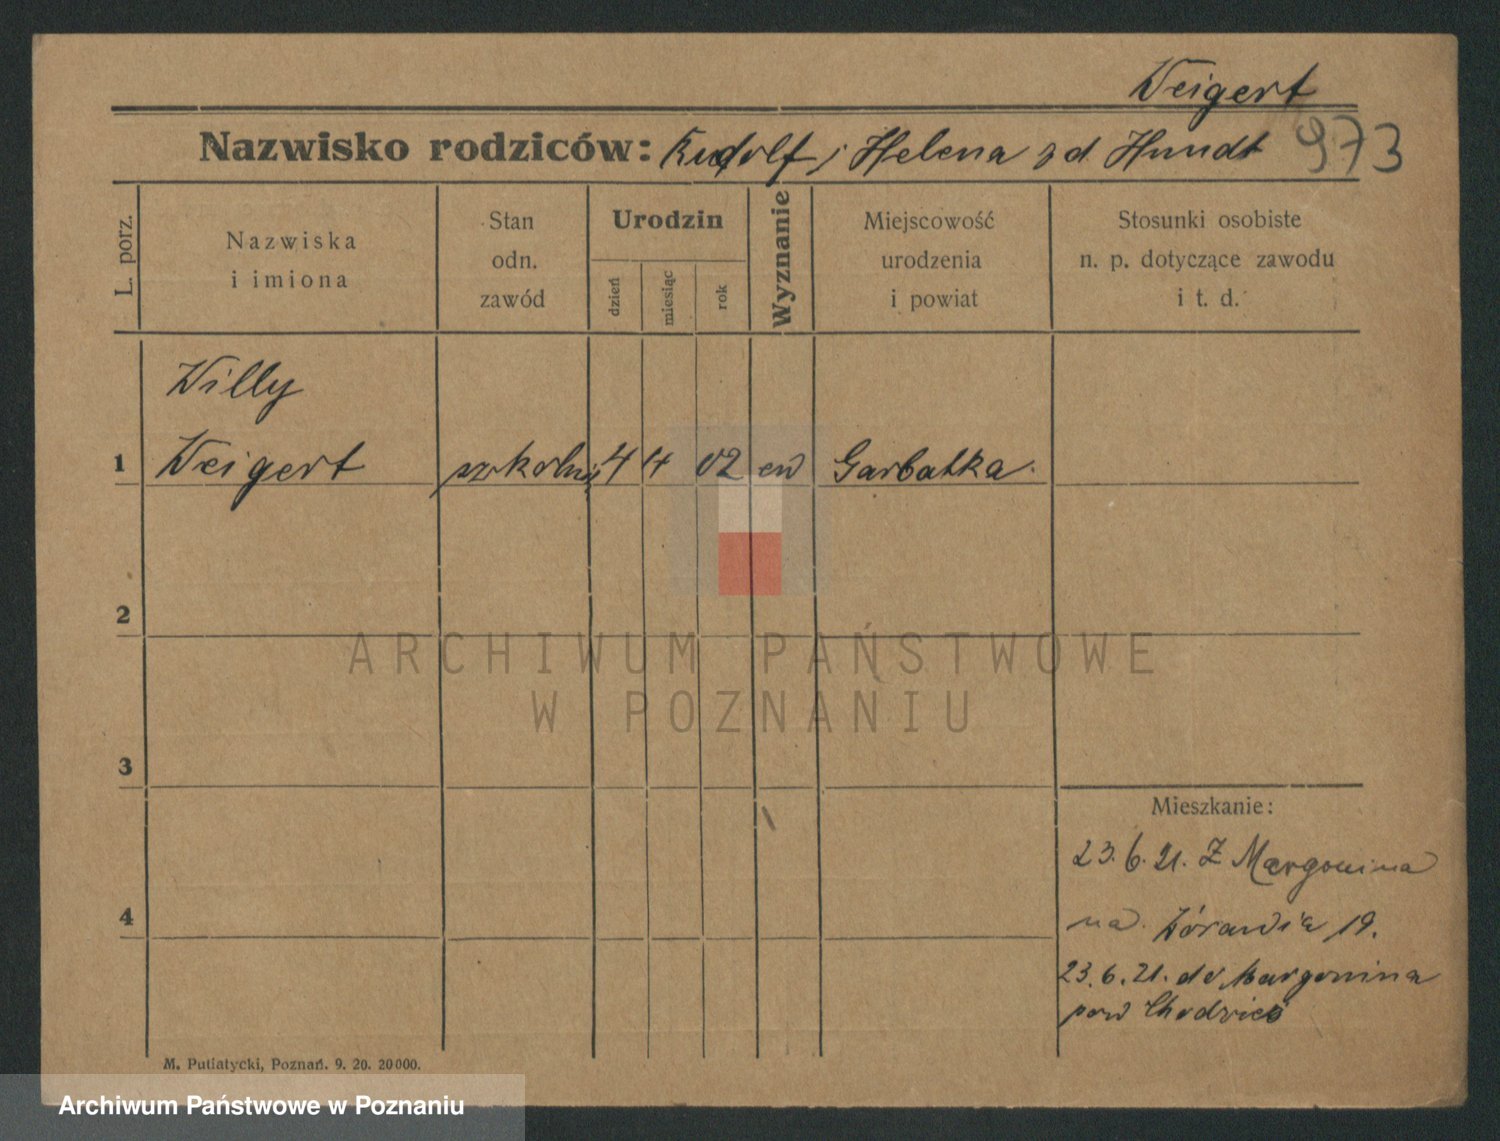 Weigert
Nazwisko rodziców: Rudolf i Helena zd Hundt 973
L. porz.
Nazwiska
i imiona
Stan
odn.
zawód
Urodzin
dzień
miesiąc
rok
Wyznanie
Miejscowość
urodzenia
i powiat
Stosunki osobiste
n. p. dotyczące zawodu
i t. d.
Willy
1 Weigert 4 4 02 ew Garbatka
2
3
4
ARCHIWUM PAŃSTWOWE
W POZNANIU
Mieszkanie:
23.6.21. Z Margonina
na Żórawia 19.
23.6.21. do Margonina
pow Chodzież
M. Putiatycki, Poznań. 9. 20. 20000.
Archiwum Państwowe w Poznaniu